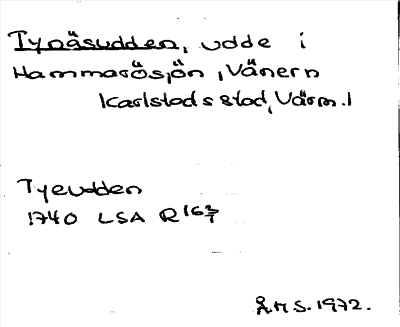 Tynäsudden, udde i
Hammarösjön, Vänern
Karlstads stad, Värm. l
Tyeudden
1740 LSA R 16 2/7
Å.M.S. 1972.